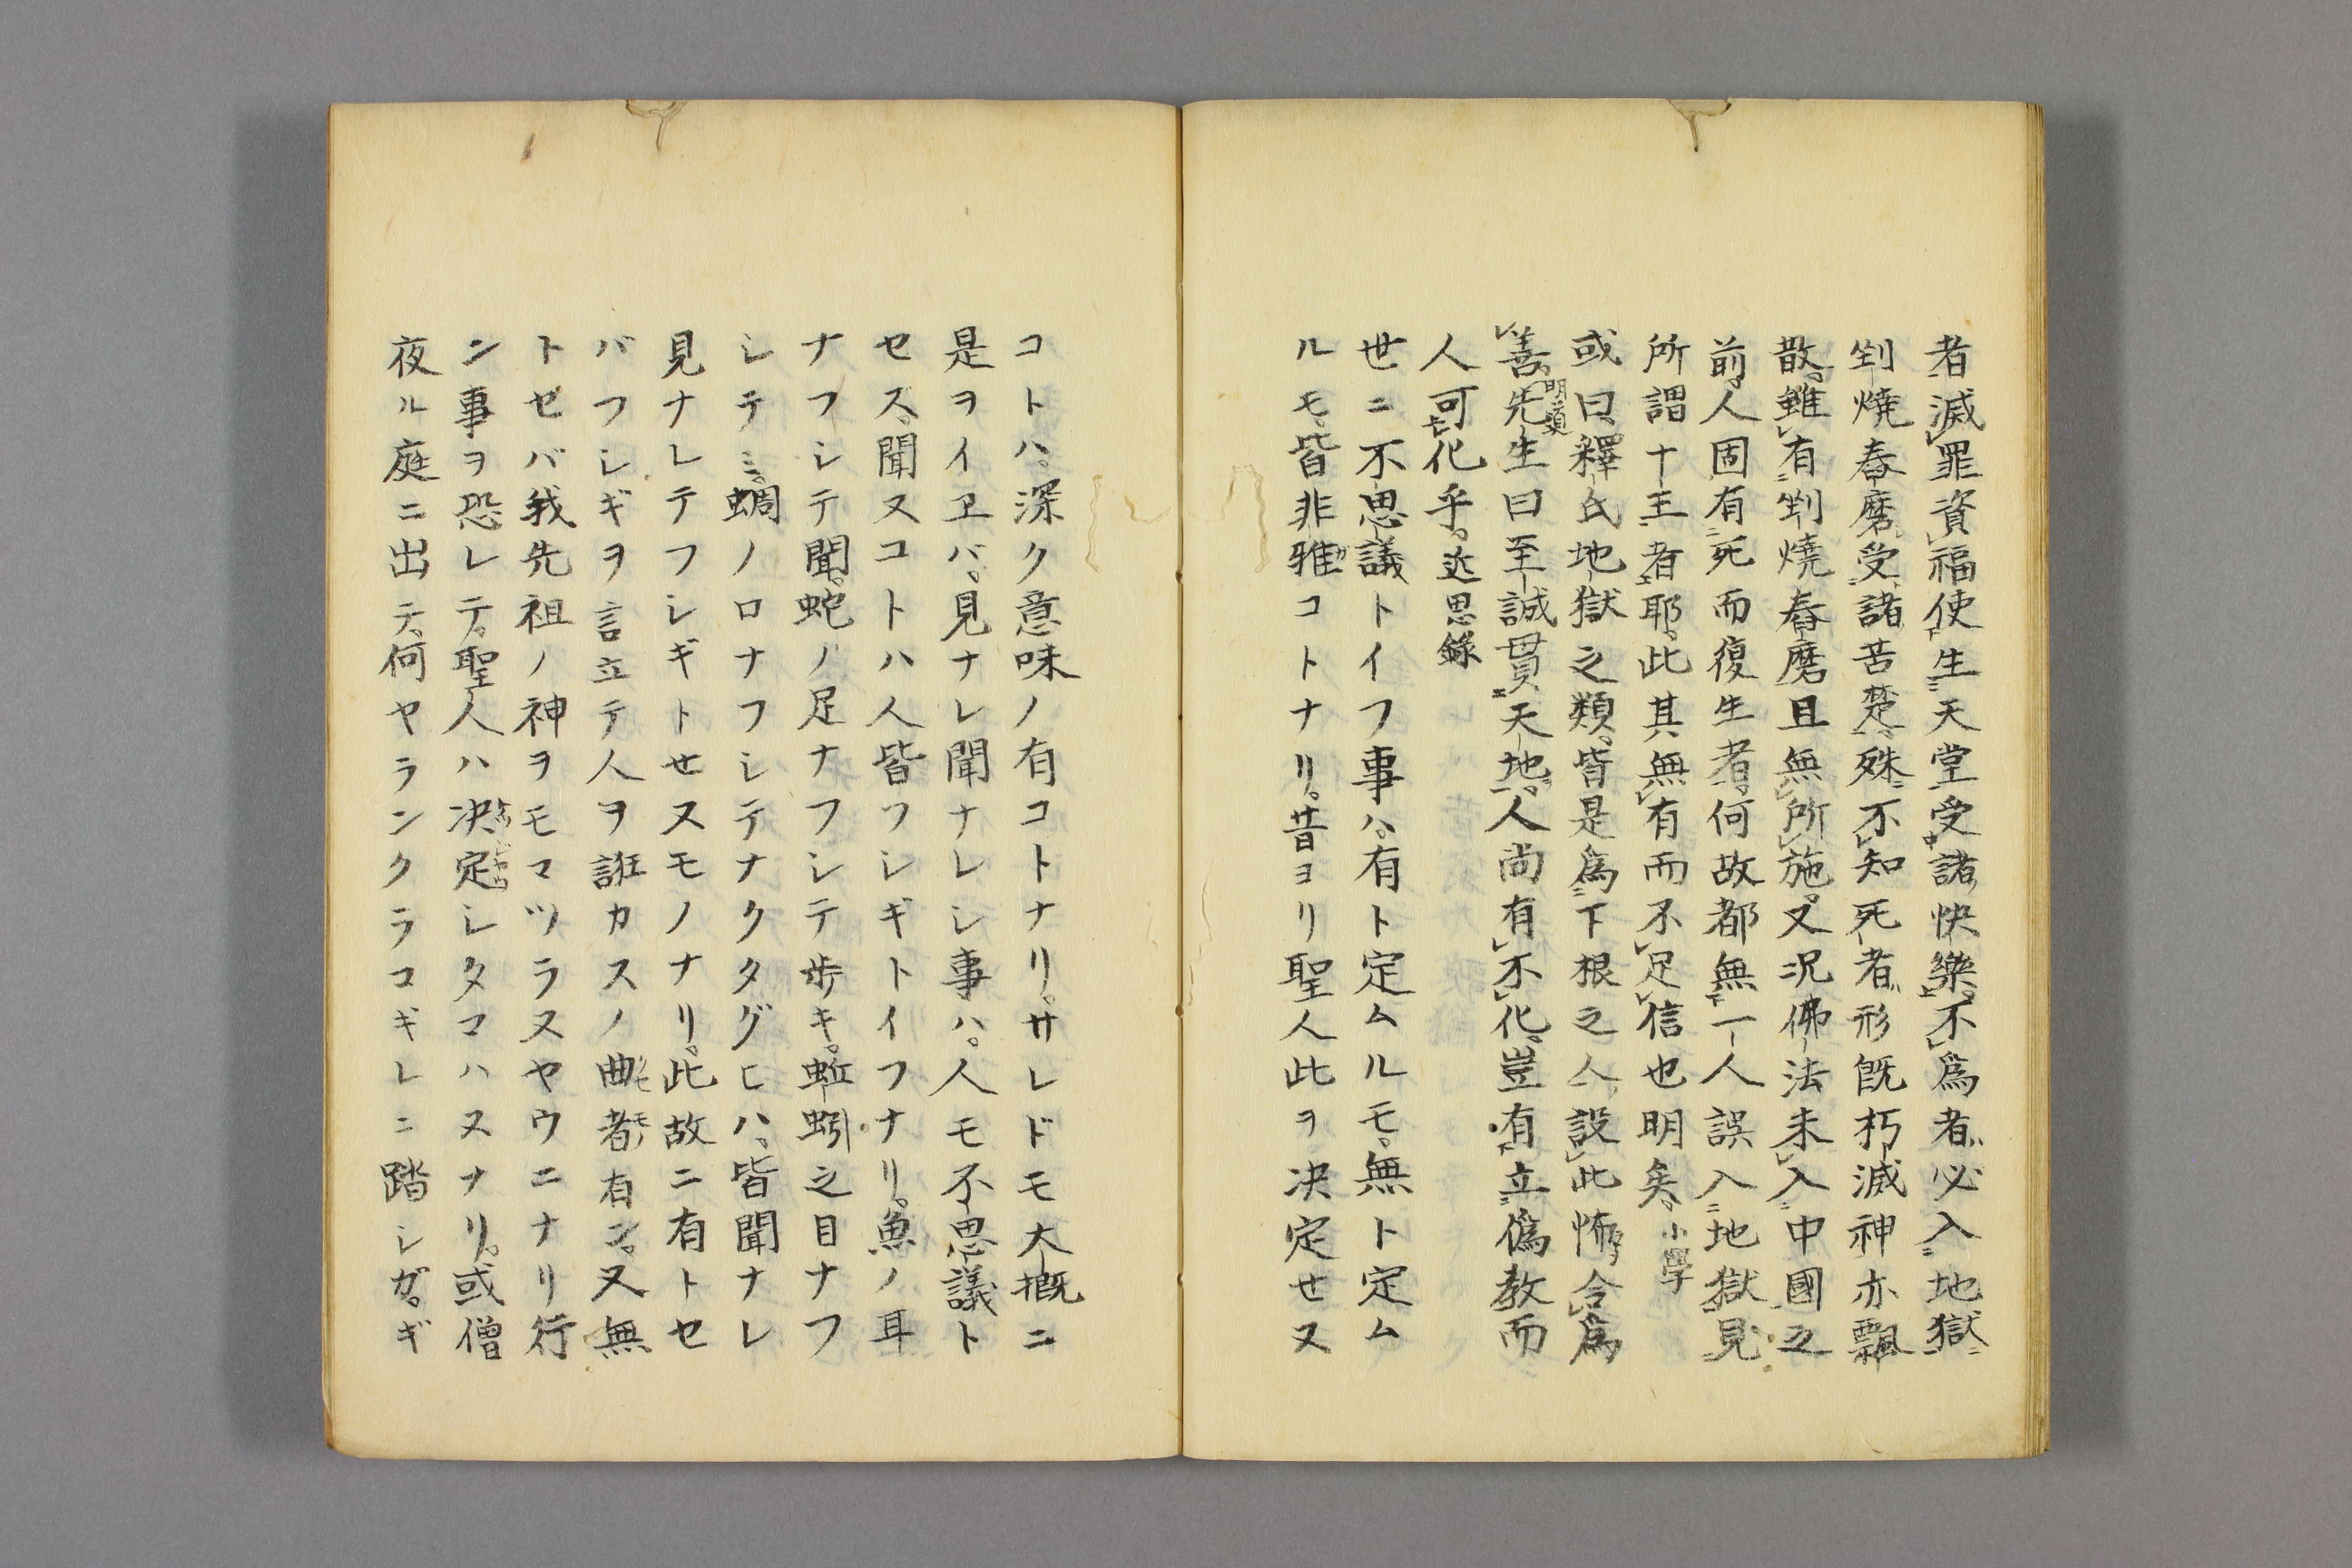 者滅罪資福使生天堂受諸快樂不爲者必入地獄
剉燒舂磨受諸苦楚殊不知死者形既朽滅神亦飄
散雖有剉燒舂磨且無所施又況佛法未入中國之
前人固有死而復生者何故都無一人誤入地獄見
所謂十王者耶此其無有而不足信也明矣小學
或曰釋氏地獄之類皆是爲下根之人設此怖令爲
善明道先生曰至誠貫天地人尚有不化豈有立僞教而
人可化乎近思錄
世ニ不思議トイフ事ハ有ト定ムルモ無ト定ム
ルモ皆非雅コトナリ昔ヨリ聖人此ヲ决定セヌ
コトハ深ク意味ノ有コトナリサレドモ大概ニ
是ヲイヱバ見ナレ聞ナレシ事ハ人モ不思議ト
セズ聞ヌコトハ人皆フシギトイフナリ魚ノ耳
ナフシテ聞蛇ノ足ナフシテ歩キ蚯蚓之目ナフ
シテミ蜩ノロナフシテナクタグヒハ皆聞ナレ
見ナレテフシギトセヌモノナリ此故ニ有トセ
バフシギヲ言立テ人ヲ誑カスノ曲者有ン又無
トゼバ我先祖ノ神ヲモマツラヌヤウニナリ行
ン事ヲ恐レテ聖人ハ决定シタマハヌナリ或僧
夜ル庭ニ出テ何ヤランクラコギレニ踏シガギ